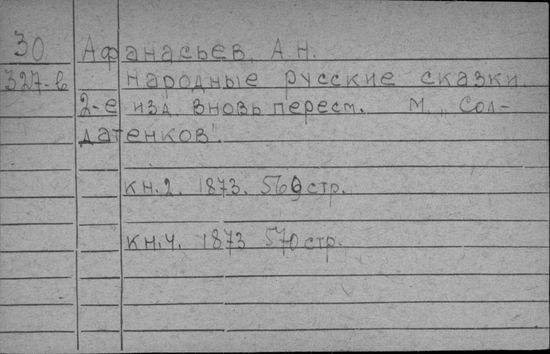 30 Афанасьев, А.Н.
327-в Народные русские сказки.
2-е изд. вновь пересм. М. „Сол-
датенков".
кн.2. 1873. 569 стр.
кн.4. 1873 570 стр.